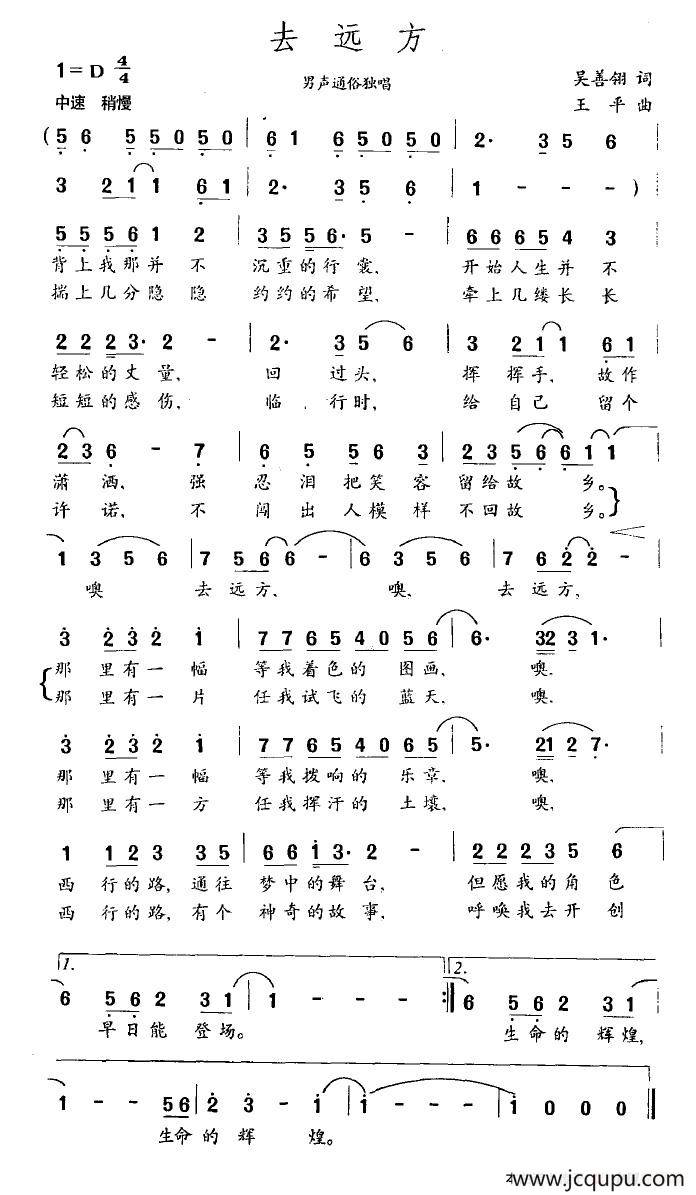 去远方
1=D 4/4
男声通俗独唱
吴善翎 词
中速 稍慢
王 平 曲
(5 6 5 5 0 5 0 | 6 1 6 5 0 5 0 | 2· 3 5 6 |
3 2 1 1 6 1 | 2· 3 5 6 | 1 - - - ) |
5 5 5 6 1 2 | 3 5 5 6· 5 - | 6 6 6 5 4 3 |
背上我那并不 沉重的行囊, 开始人生并不
揣上几分隐隐 约约的希望, 牵上几缕长长
2 2 2 3· 2 - | 2· 3 5 6 | 3 2 1 1 6 1 |
轻松的丈量, 回 过头, 挥 挥手, 故作
短短的感伤, 临 行时, 给 自己 留个
2 3 6 - 7 | 6 5 5 6 3 | 2 2 3 5 6 6 1 1
潇洒, 强 忍泪把笑容 留给故 乡。
许诺, 不 闯出人模样 不回故 乡。
1 3 5 6 | 7 5 6 6 - | 6 3 5 6 | 7 6 2 2 -
噢 去远方, 噢, 去远方,
3 2 3 2 1 | 7 7 6 5 4 0 5 6 | 6· 3 2 3 1·
那里有一幅 等我着色的 图画, 噢.
那里有一片 任我试飞的 蓝天, 噢.
3 2 3 2 1 | 7 7 6 5 4 0 6 5 | 5· 2 1 2 7·
那里有一幅 等我拨响的 乐章, 噢,
那里有一方 任我挥汗的 土壤, 噢,
1 1 2 3 3 5 | 6 6 1 3· 2 - | 2 2 2 3 5 6
西行的路, 通往 梦中的舞台, 但愿我的角色
西行的路, 有个 神奇的故事, 呼唤我去开创
1. 2.
6 5 6 2 3 1 | 1 - - - :‖ 6 5 6 2 3 1 |
早日能 登场。 生命的 辉煌,
1 - - 5 6 | 2 3 - 1 | 1 - - - | 1 0 0 0 ‖
生命的辉 煌。
www.jcqupu.com